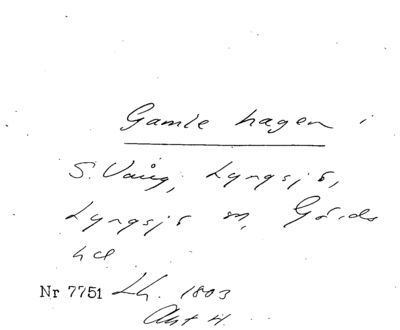 Gamle hagen i
S. Vång, Lyngsjö,
Lyngsjö sn, Gärds
hd
Nr 7751 Lh. 1803
Akt 4.